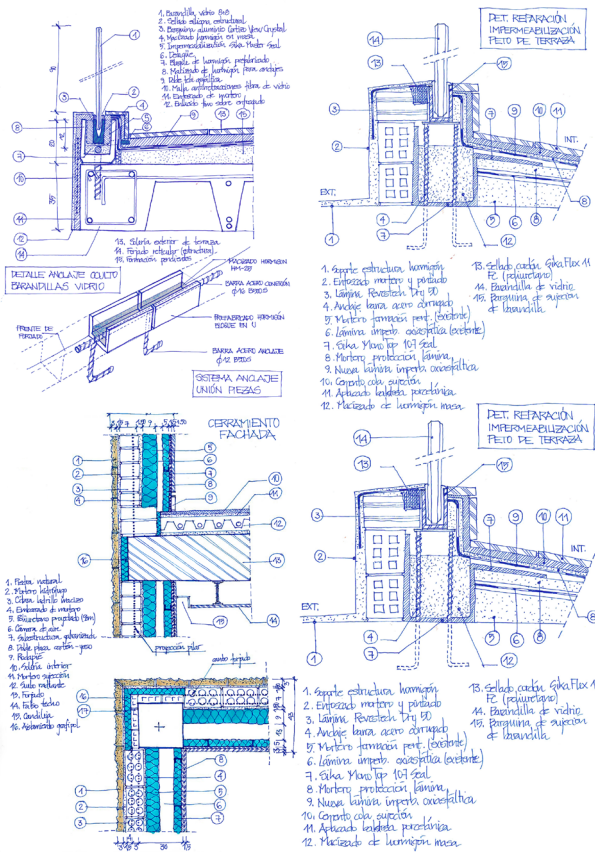 1. Barandilla vidrio 8+8
2. Sellado silicona estructural
3. Barquina aluminio Cortizo View Crystal
4. Macizado hormigón en masa
5. Impermeabilización Sika Master Seal
6. Desagüe
7. Bloque de hormigón prefabricado
8. Macizado de hormigón para anclajes
9. Doble tela asfáltica
10. Malla antirretracciones fibra de vidrio
11. Enfoscado de mortero
12. Enlucido fino sobre enfoscado
13. Solería exterior de terraza
14. Forjado reticular (estructura)
15. Formación pendientes
DETALLE ANCLAJE OCULTO
BARANDILLAS VIDRIO
MACIZADO HORMIGÓN
HM-25
BARRA ACERO CONEXIÓN
Ø16 B500S
PREFABRICADO HORMIGÓN
BLOQUE EN U
BARRA ACERO ANCLAJE
Ø12 B500S
FRENTE DE
FORJADO
SISTEMA ANCLAJE
UNIÓN PIEZAS
DET. REPARACIÓN
IMPERMEABILIZACIÓN
PETO DE TERRAZA
INT.
EXT.
1. Soporte estructura hormigón
2. Enfoscado mortero y pintado
3. Lámina Revestech Dry 50
4. Anclaje barra acero corrugado
5. Mortero formación pent. (existente)
6. Lámina imperb. oxiasfáltica (existente)
7. Sika MonoTop 107 Seal
8. Mortero protección lámina
9. Nueva lámina imperb. oxiasfáltica
10. Cemento cola sujeción
11. Aplacado baldosa porcelánica
12. Macizado de hormigón masa
13. Sellado, cordón Sika Flux 11
Fc (poliuretano)
14. Barandilla de vidrio
15. Barquina de sujeción
de barandilla
CERRAMIENTO
FACHADA
1. Piedra natural
2. Mortero hidrófugo
3. Citara ladrillo macizo
4. Embarrado de mortero
5. Poliuretano proyectado (8cm)
6. Cámara de aire
7. Subestructura galvanizada
8. Doble placa cartón-yeso
9. Rodapié
10. Solería interior
11. Mortero sujeción
12. Suelo radiante
13. Forjado
14. Falso techo
15. Candileja
16. Aislamiento grafipol
proyección pilar
canto forjado
DET. REPARACIÓN
IMPERMEABILIZACIÓN
PETO DE TERRAZA
INT.
EXT.
1. Soporte estructura hormigón
2. Enfoscado mortero y pintado
3. Lámina Revestech Dry 50
4. Anclaje barra acero corrugado
5. Mortero formación pent. (existente)
6. Lámina imperb. oxiasfáltica (existente)
7. Sika MonoTop 107 Seal
8. Mortero protección lámina
9. Nueva lámina imperb. oxiasfáltica
10. Cemento cola sujeción
11. Aplacado baldosa porcelánica
12. Macizado de hormigón masa
13. Sellado, cordón Sika Flux 11
Fc (poliuretano)
14. Barandilla de vidrio
15. Barquina de sujeción
de barandilla